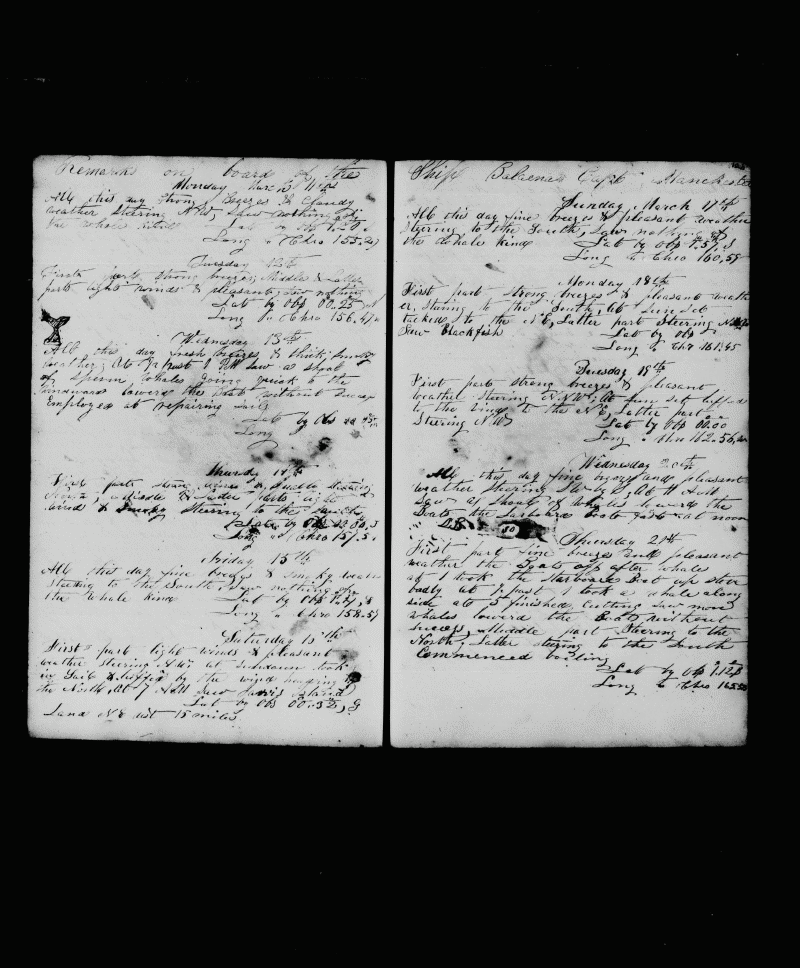 Remarks on board of the
Monday March 11th
All this day strong Breezes & Cloudy
weather Steering NW, Saw nothing of
the whale kind Lat by obs
Long by Chro 155.
Tuesday 12th
First part strong breezes, Middle & Latter
parts light winds & pleasant, saw nothing
Lat by obs 00.25
Long by Chro 156.47
Wednesday 13th
All this day fresh breezes & thick, smoky
weather, At ½ past 1 PM saw a shoal
of Sperm Whales going quick to the
windward lowerd the Boats without success
Employed at repairing sails
Lat by obs
Long
Thursday 14th
First part
Middle & Latter parts light
winds & Smoky Steering to the South
Lat by obs 00.
Long by Chro 157.5
Friday 15th
All this day fine breezes & smoky weather
Steering to the South, saw nothing of
the Whale kind Lat by obs
Long " Chro 158.57
Saturday 16th
First part light winds & pleasant
weather Steering NW, at sundown took
in Sail & luffed by the wind heading to
the North, At 7 AM saw Jarvis Island
Lat by obs 00.32, S
Land NE dist 15 miles
Ship Balaena Capt Manchester
Sunday March 17th
All this day fine breezes & pleasant weather
Steering to the South, Saw nothing of
the Whale kind Lat by obs S
Long " Chro 160.59
Monday 18th
First part strong breezes & pleasant weath
er, Steering to the South, At Sun Set
tacked to the NE, Latter part Steering
Saw Blackfish Lat by obs
Long " Chr 161.45
Tuesday 19th
First part strong breezes & pleasant
weather Steering NNW, At sun set luffed
to the wind to the NE, Latter part
Steering NW Lat by obs 00.00
Long " Chro 162.56
Wednesday 20th
All this day fine breezes and pleasant
weather Steering SW by S, At 11 AM
Saw a shoal of Whales lowerd the
Boats the Larboard boats fast at noon
80
Thursday 21st
First part fine breezes and pleasant
weather the Boats off after whales
at 1 took the Starboard Boat up stove
badly at ½ past 1 took a whale along
side at 5 finished cutting saw more
whales lowerd the Boats without
success, Middle part Steering to the
North, Latter steering to the South
Commenced boiling
Lat by obs 1.12
Long " Chro 165.50